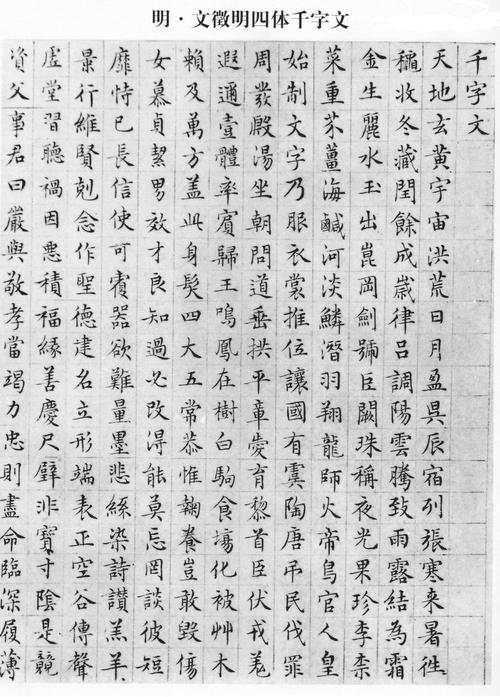 明·文徵明四体千字文
千字文
天地玄黃宇宙洪荒日月盈昃辰宿列張寒来暑徃
穐收冬藏閏餘成歲律吕調陽雲騰致雨露結為霜
金生麗水玉出崑岡劍號巨闕珠稱夜光果珍李柰
菜重芥薑海鹹河淡鱗潛羽翔龍師火帝鳥官人皇
始制文字乃服衣裳推位讓國有虞陶唐弔民伐罪
周發殷湯坐朝問道垂拱平章愛育黎首臣伏戎羌
遐邇壹體率賓歸王鳴鳳在樹白駒食場化被艸木
賴及萬方盖此身髮四大五常恭惟鞠養豈敢毀傷
女慕貞絜男效才良知過必改得能莫忘罔談彼短
靡恃己長信使可覆器欲難量墨悲絲染詩讚羔羊
景行維賢剋念作聖德建名立形端表正空谷傳聲
虛堂習聽禍因惡積福緣善慶尺璧非寶寸陰是競
資父事君曰嚴與敬孝當竭力忠則盡命臨深履薄